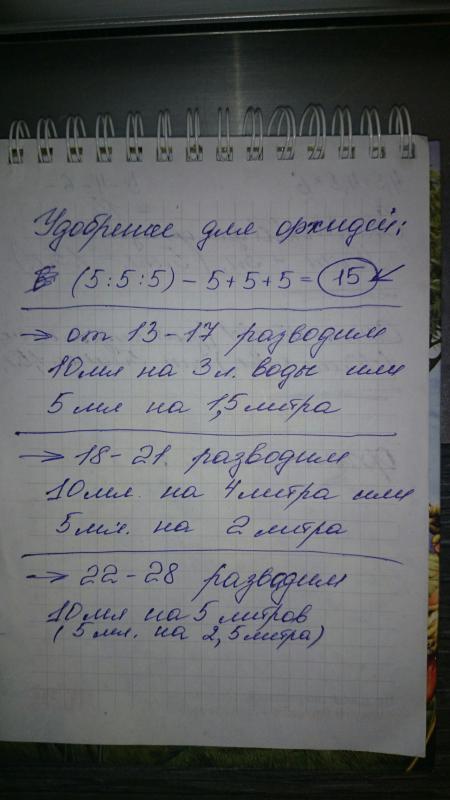 Удобрение для орхидей:
(5:5:5) - 5+5+5 = 15
→ от 13-17 разводим
10мл на 3л. воды или
5 мл на 1,5 литра
→ 18-21 разводим
10мл. на 4 литра или
5мл. на 2 литра
→ 22-28 разводим
10мл на 5 литров
(5мл. на 2,5 литра)